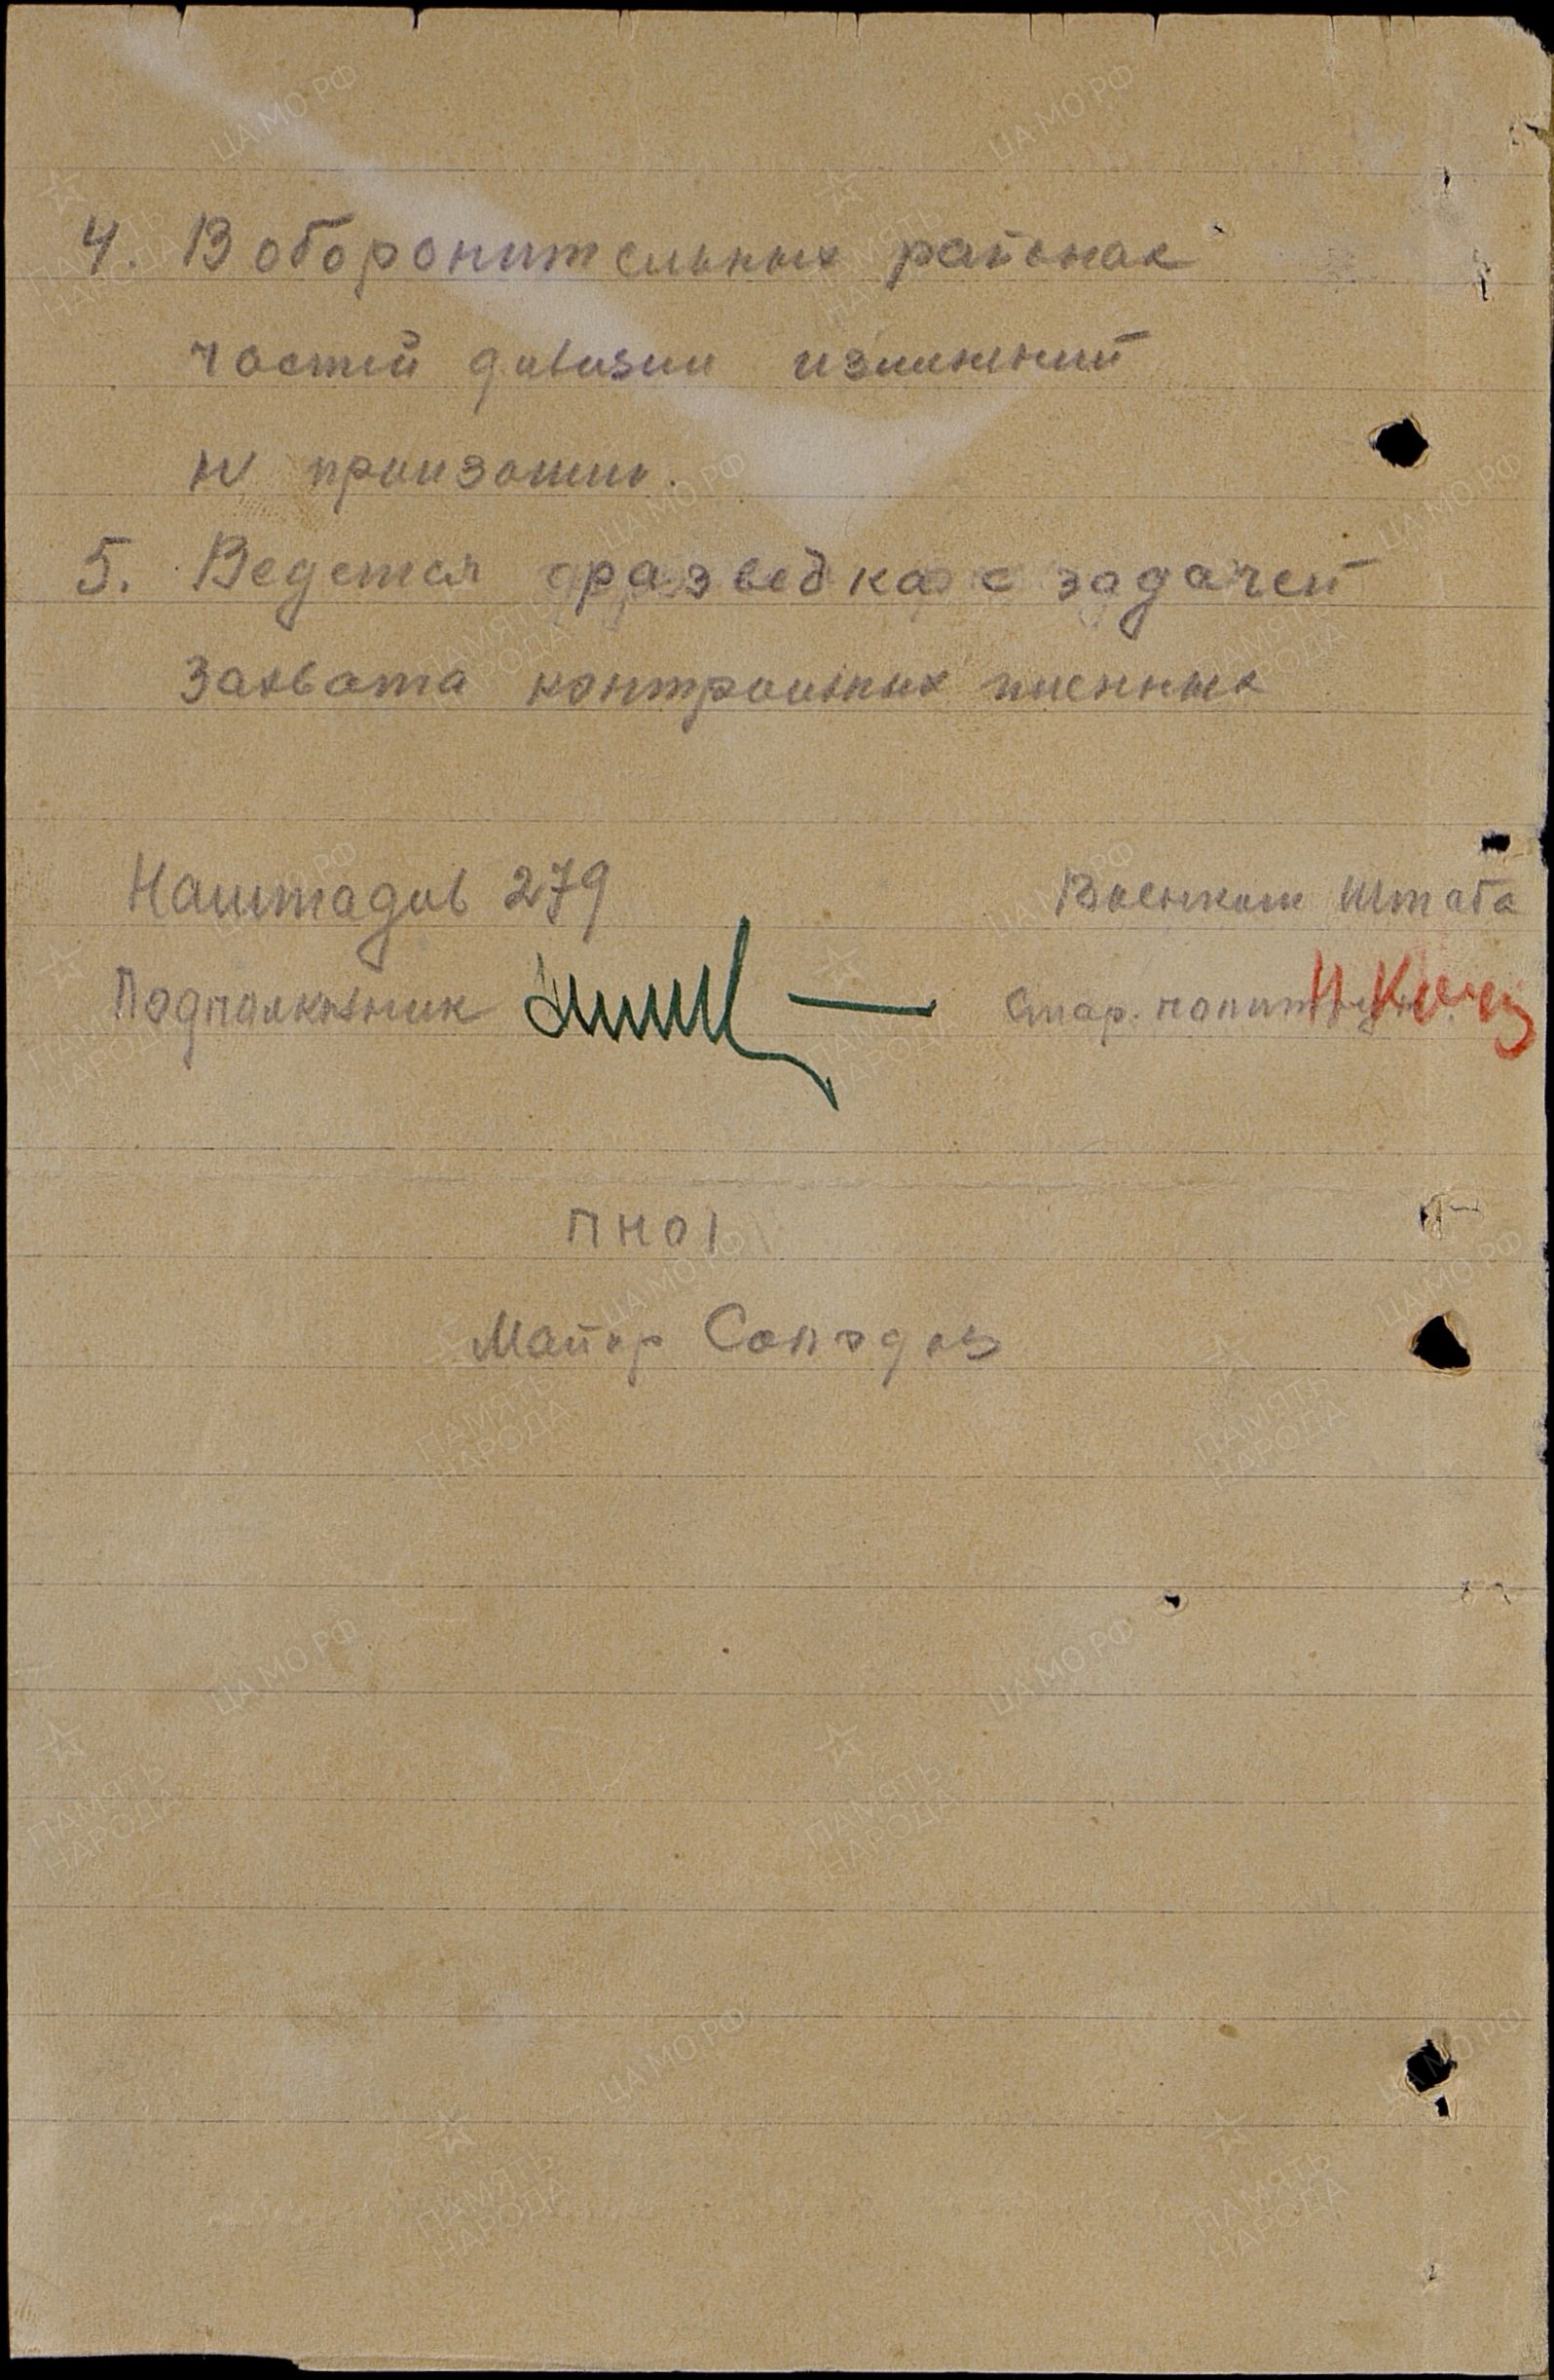 4. В оборонительных районах
частей дивизии изменений
не произошло.
5. Ведется разведка с задачей
захвата контрольных пленных
Наштадив 279
Военком штаба
Подполковник
Стар. политрук
ПНО1
Майор
ЦАМО РФ
ПАМЯТЬ
НАРОДА